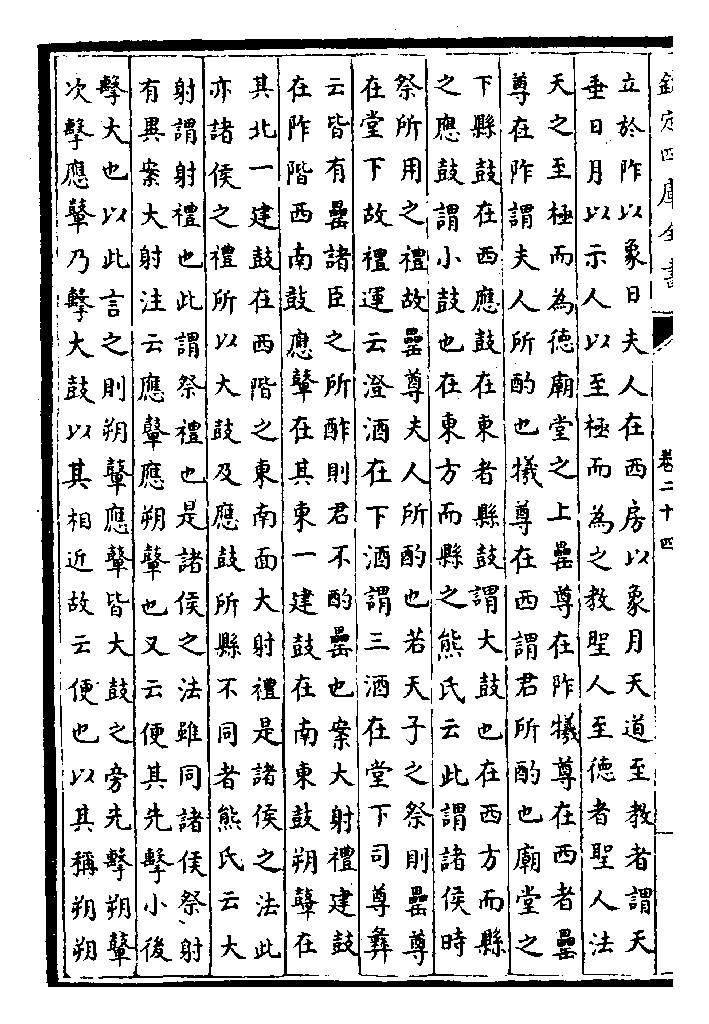 欽定四庫全書
卷二十四
立於阼以象日夫人在西房以象月天道至教者謂天
垂日月以示人以至極而為之教聖人至德者聖人法
天之至極而為德廟堂之上罍尊在阼犧尊在西者罍
尊在阼謂夫人所酌也犧尊在西謂君所酌也廟堂之
下縣鼓在西應鼓在東者縣鼓謂大鼓也在西方而縣
之應鼓謂小鼓也在東方而縣之熊氏云此謂諸侯時
祭所用之禮故罍尊夫人所酌也若天子之祭則罍尊
在堂下故禮運云澄酒在下酒謂三酒在堂下司尊彝
云皆有罍諸臣之所酢則君不酌罍也案大射禮建鼓
在阼階西南鼓應鼙在其東一建鼓在南東鼓朔鼙在
其北一建鼓在西階之東南面大射禮是諸侯之法此
亦諸侯之禮所以大鼓及應鼓所縣不同者熊氏云大
射謂射禮也此謂祭禮也是諸侯之法雖同諸侯祭射
有異案大射注云應鼙應朔鼙也又云便其先擊小後
擊大也以此言之則朔鼙應鼙皆大鼓之旁先擊朔鼙
次擊應鼙乃擊大鼓以其相近故云便也以其稱朔朔